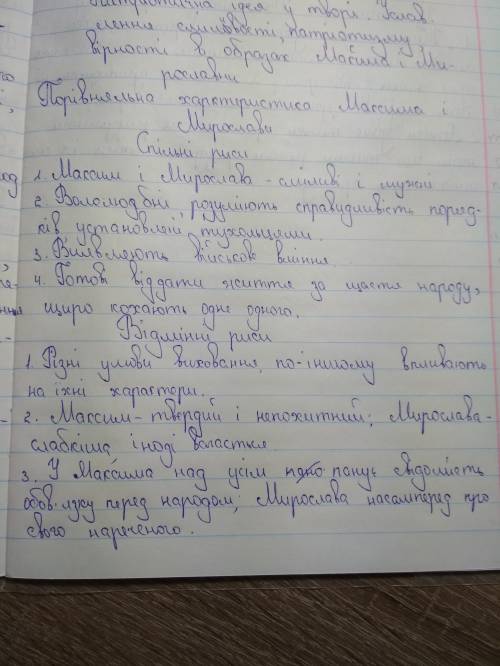 Патріотична ідея у творі. Услав
лення сміливості, патріотизму
вірності в образах Максима і Ми-
рослави
Порівняльна характеристика Массима і
Мирослави
Спільні риси
1. Максим і Мирослава - сміливі і мужні
2. Волелюбні, розуміють справидливість поряд-
ків установлені тухольцями.
3. Виявляють військові вміння.
4. Готові віддати життя за щастя народу,
щиро кохають одне одного.
Відмінні риси
1. Різні умови виховання, по-іншому впливають
на їхні характери.
2. Максим - твердий і непохитний; Мирослава-
слабкіша, іноді вагається
3. У Максима над усім панує свідомість
обов'язку перед народом; Мирослава насамперед про
свого нареченого.